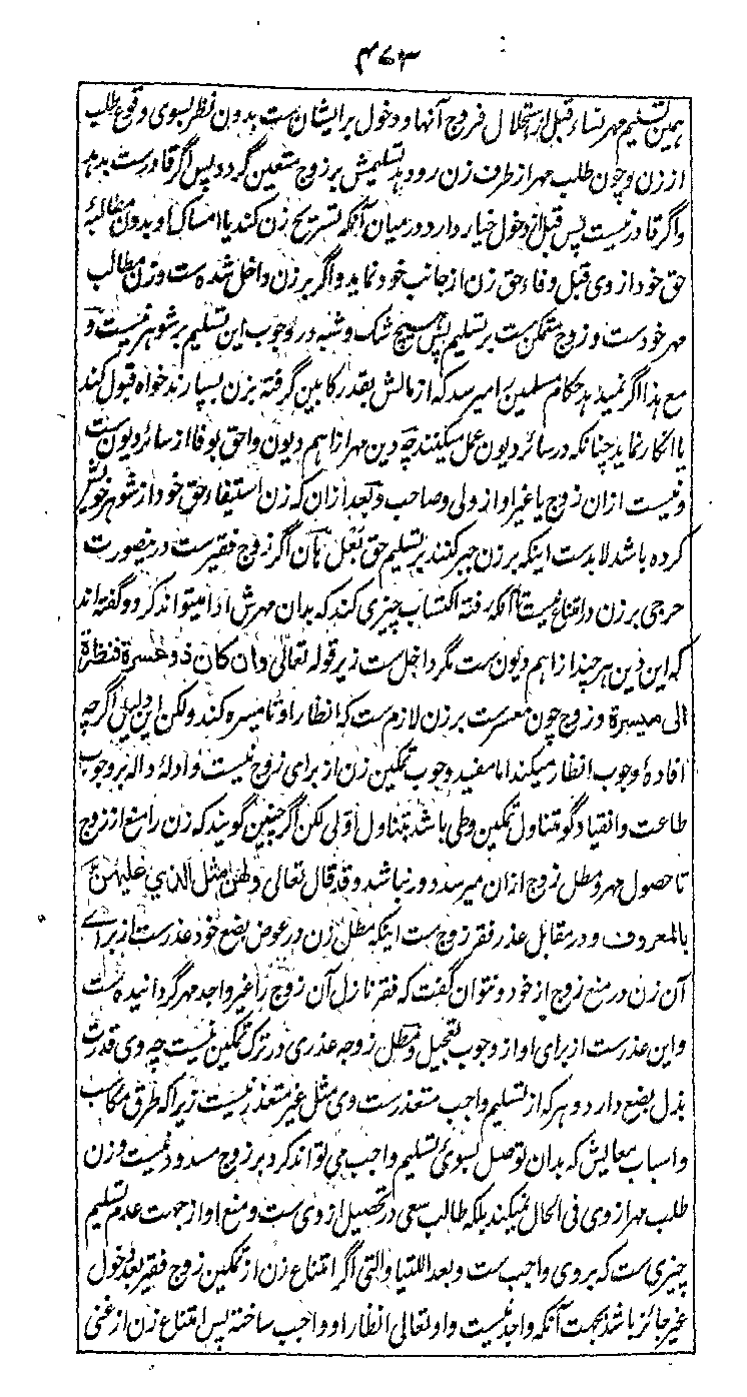 ۴۷۳
همین تسلیم مهر نساء قبل از استحلال فروج آنها و دخول بر ایشان ست بدون نظر بسوی وقوع طلب
از زن و چون طلب مهر از طرف زن رو دهد تسلیمش بر زوج متعین گردد پس اگر قادرست بدهد
و اگر قادر نیست پس قبل از دخول خیار دارد در میان آنکه تسریح زن کند یا امساک او بدون مطالبهٔ
حق خود از وی قبل وفاء حق زن از جانب خود نماید و اگر بر زن داخل شده ست و زن مطالب
مهر خودست و زوج متمکن ست بر تسلیم پس هیچ شک و شبه در وجوب این تسلیم بر شوهر نیست و
مع هذا اگر نمیدهد حکام مسلمین را میرسد که از مالش بقدر کابین گرفته بزن بسپارند خواه قبول کند
یا انکار نماید چنانکه در سائر دیون عمل میکنند چه دین مهر از اهم دیون و احق بوفا از سائر دیون ست
و نیست ازان زوج یا غیر او از ولی و صاحب و بعد ازان که زن استیفاء حق خود از شوهر خویش
کرده باشد لابدست اینکه بر زن جبر کنند بر تسلیم حق بعل هان اگر زوج فقیرست درینصورت
حرجی بر زن در امتناع نیست تا آنکه رفته اکتساب چیزی کند که بدان مهرش ادا میتواند کرد و گفته اند
که این دین هر چند از اهم دیون ست مگر داخل ست زیر قوله تعالی وان کان ذو عسرة فنظرة
الی میسرة و زوج چون معسرست بر زن لازم ست که انظار او تا میسره کند ولکن این دلیل اگرچه
افادهٔ وجوب انظار میکند اما مفید وجوب تمکین زن از برای زوج نیست و ادلهٔ داله بر وجوب
طاعت و انقیاد گو متناول تمکین وطی باشد بتناول اولی لکن اگر چنین گویند که زن را منع از زوج
تا حصول مهر و مطل زوج ازان میرسد دور نباشد و قد قال تعالی ولهن مثل الذی علیهن
بالمعروف و در مقابل عذر فقر زوج ست اینکه مطل زن در عوض بضع خود عذرست از برای
آن زن در منع زوج از خود و نتوان گفت که فقر نازل آن زوج را غیر واجد مهر گردانیده ست
و این عذرست از برای او از وجوب تعجیل و مطل زوجه عذری در ترک تمکین نیست چه وی قدرت
بذل بضع دارد و هر که از تسلیم واجب متعذرست وی مثل غیر متعذر نیست زیرا که طرق مکاسب
و اسباب معایش که بدان توصل بسوی تسلیم واجب می تواند کرد بر زوج مسدود نیست و زن
طلب مهر از وی فی الحال نمیکند بلکه طالب سعی در تحصیل از وی ست و منع او از جهت عدم تسلیم
چیزی ست که بر وی واجب ست و بعد اللتیا والتی اگر امتناع زن از تمکین زوج فقیر بعد دخول
غیر جائز باشد بجهت آنکه واجد نیست و او تعالی انظار او واجب ساخته پس امتناع زن از غنی